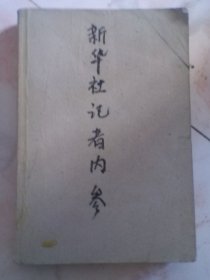 新华社记者内参